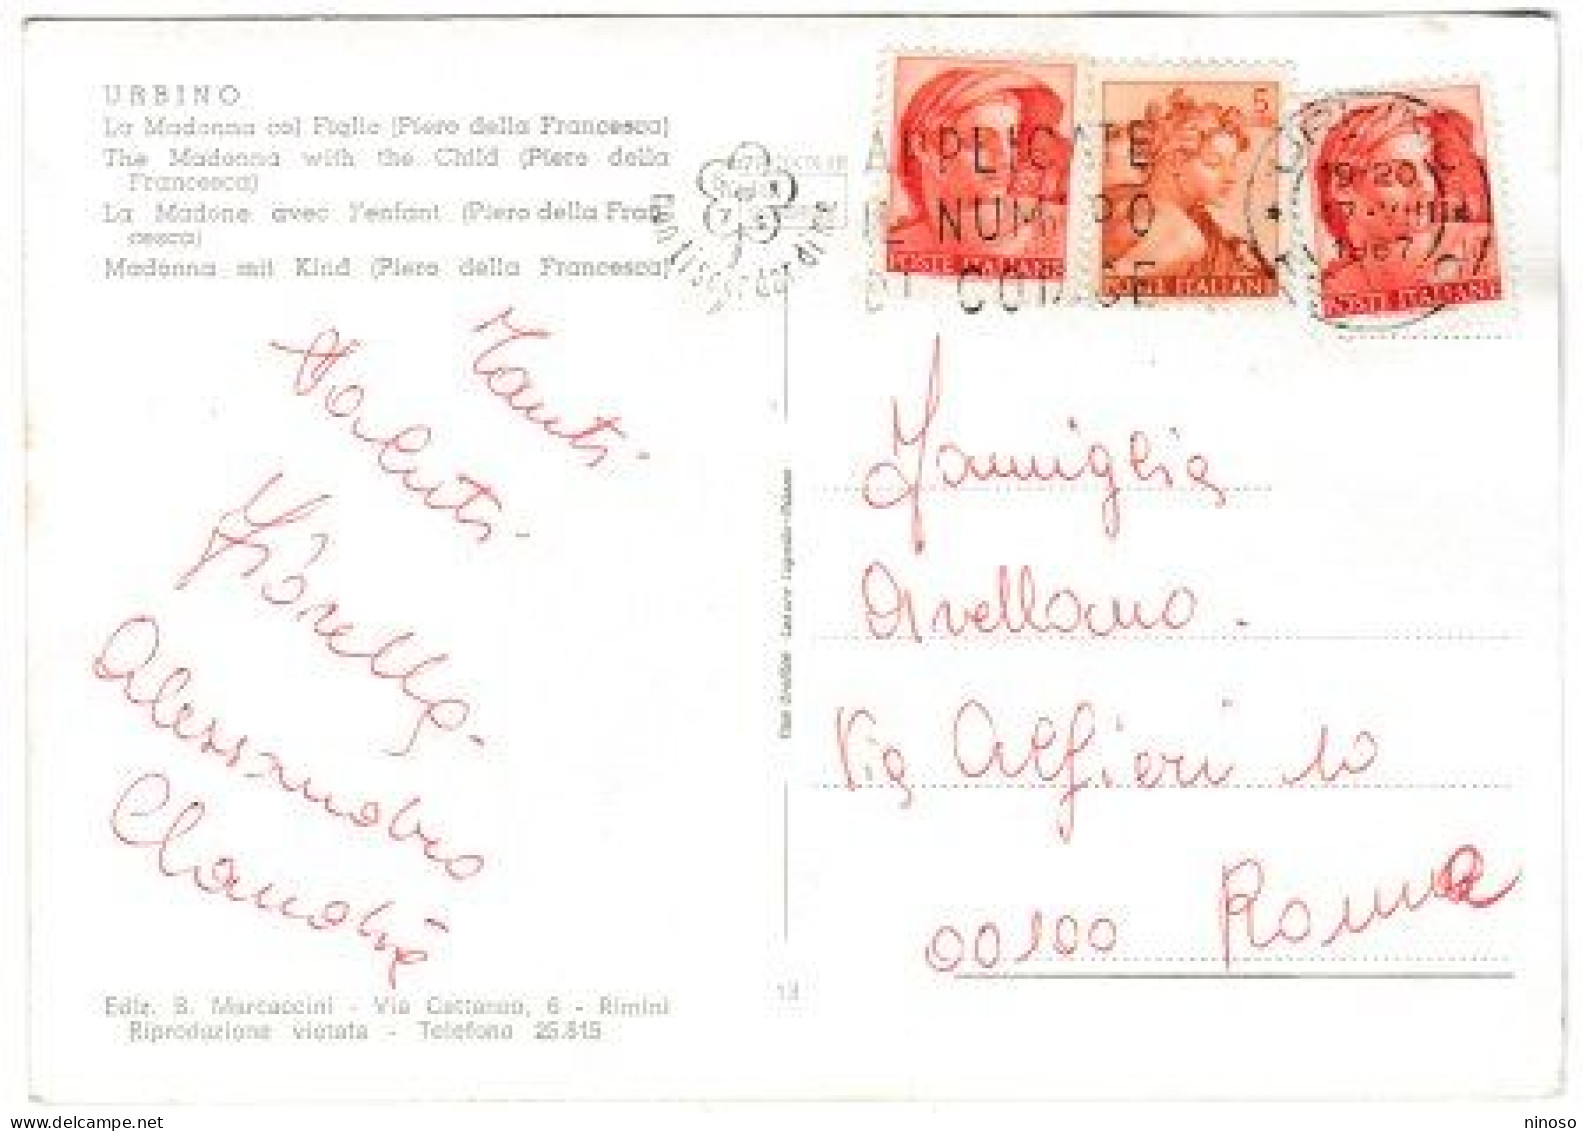 URBINO
La Madonna col Figlio (Piero della Francesca)
The Madonna with the Child (Piero della
Francesca)
La Madone avec l'enfant (Piero della Fran
cesca)
Madonna mit Kind (Piero della Francesca)
5
POSTE ITALIANE
POSTE ITALIANE
POSTE ITALIANE
APPLICATE
NUM RO
DI CODICE
19-20
1967
Tanti
Saluti
Alessandro
Claudia
Famiglia
Avellano.
Via Alfieri 10
00100 Roma
13
Ediz. B. Marcaccini - Via Cattaneo, 6 - Rimini
Riproduzione vietata - Telefono 25.815
www.delcampe.net
ninoso